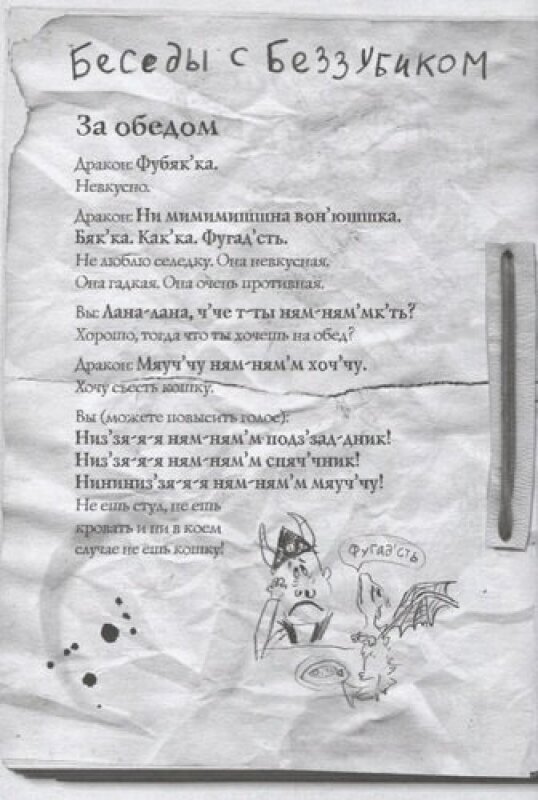 Беседы с Беззубиком
За обедом
Дракон: Фубяк’ка.
Невкусно.
Дракон: Ни мимимишшна вон’юшшка.
Бяк’ка. Как’ка. Фугад’сть.
Не люблю селедку. Она невкусная.
Она гадкая. Она очень противная.
Вы: Лана-лана, ч’че т-ты ням-ням’мк’ть?
Хорошо, тогда что ты хочешь на обед?
Дракон: Мяуч’чу ням-ням’м хоч’чу.
Хочу съесть кошку.
Вы (можете повысить голос):
Низ’зя-я-я ням-ням’м подз’зад-дник!
Низ’зя-я-я ням-ням’м спяч’чник!
Нининиз’зя-я-я ням-ням’м мяуч’чу!
Не ешь стул, не ешь
кровать и ни в коем
случае не ешь кошку!
Фугад’сть